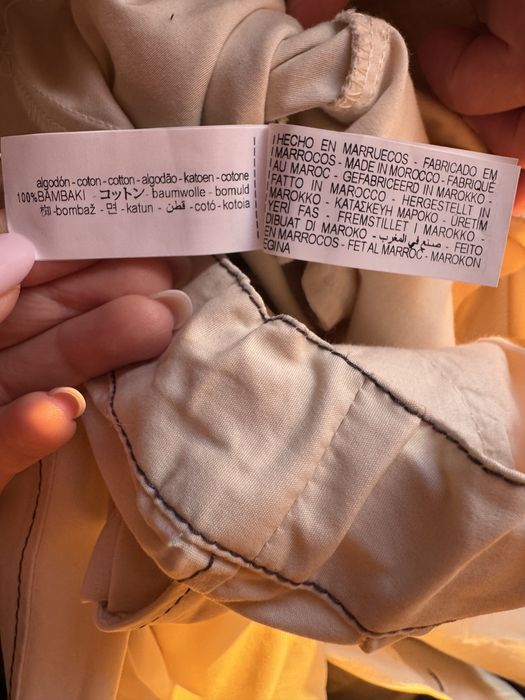 algodón - coton - cotton - algodão - katoen - cotone
100%BAMBAKI - コットン - baumwolle - bomuld
棉 - bombaž - 면 - katun - قطن - cotó - kotoia
HECHO EN MARRUECOS - FABRICADO EM
MARROCOS - MADE IN MOROCCO - FABRIQUÉ
AU MAROC - GEFABRICEERD IN MAROKKO -
FATTO IN MAROCCO - HERGESTELLT IN
MAROKKO - ΚΑΤΑΣΚΕΥΗ ΜΑΡΟΚΟ - ÜRETIM
YERI FAS - FREMSTILLET I MAROKKO -
DIBUAT DI MAROKO - صنع في المغرب - FEITO
EN MARROCOS - FET AL MARROC - MAROKON
EGINA